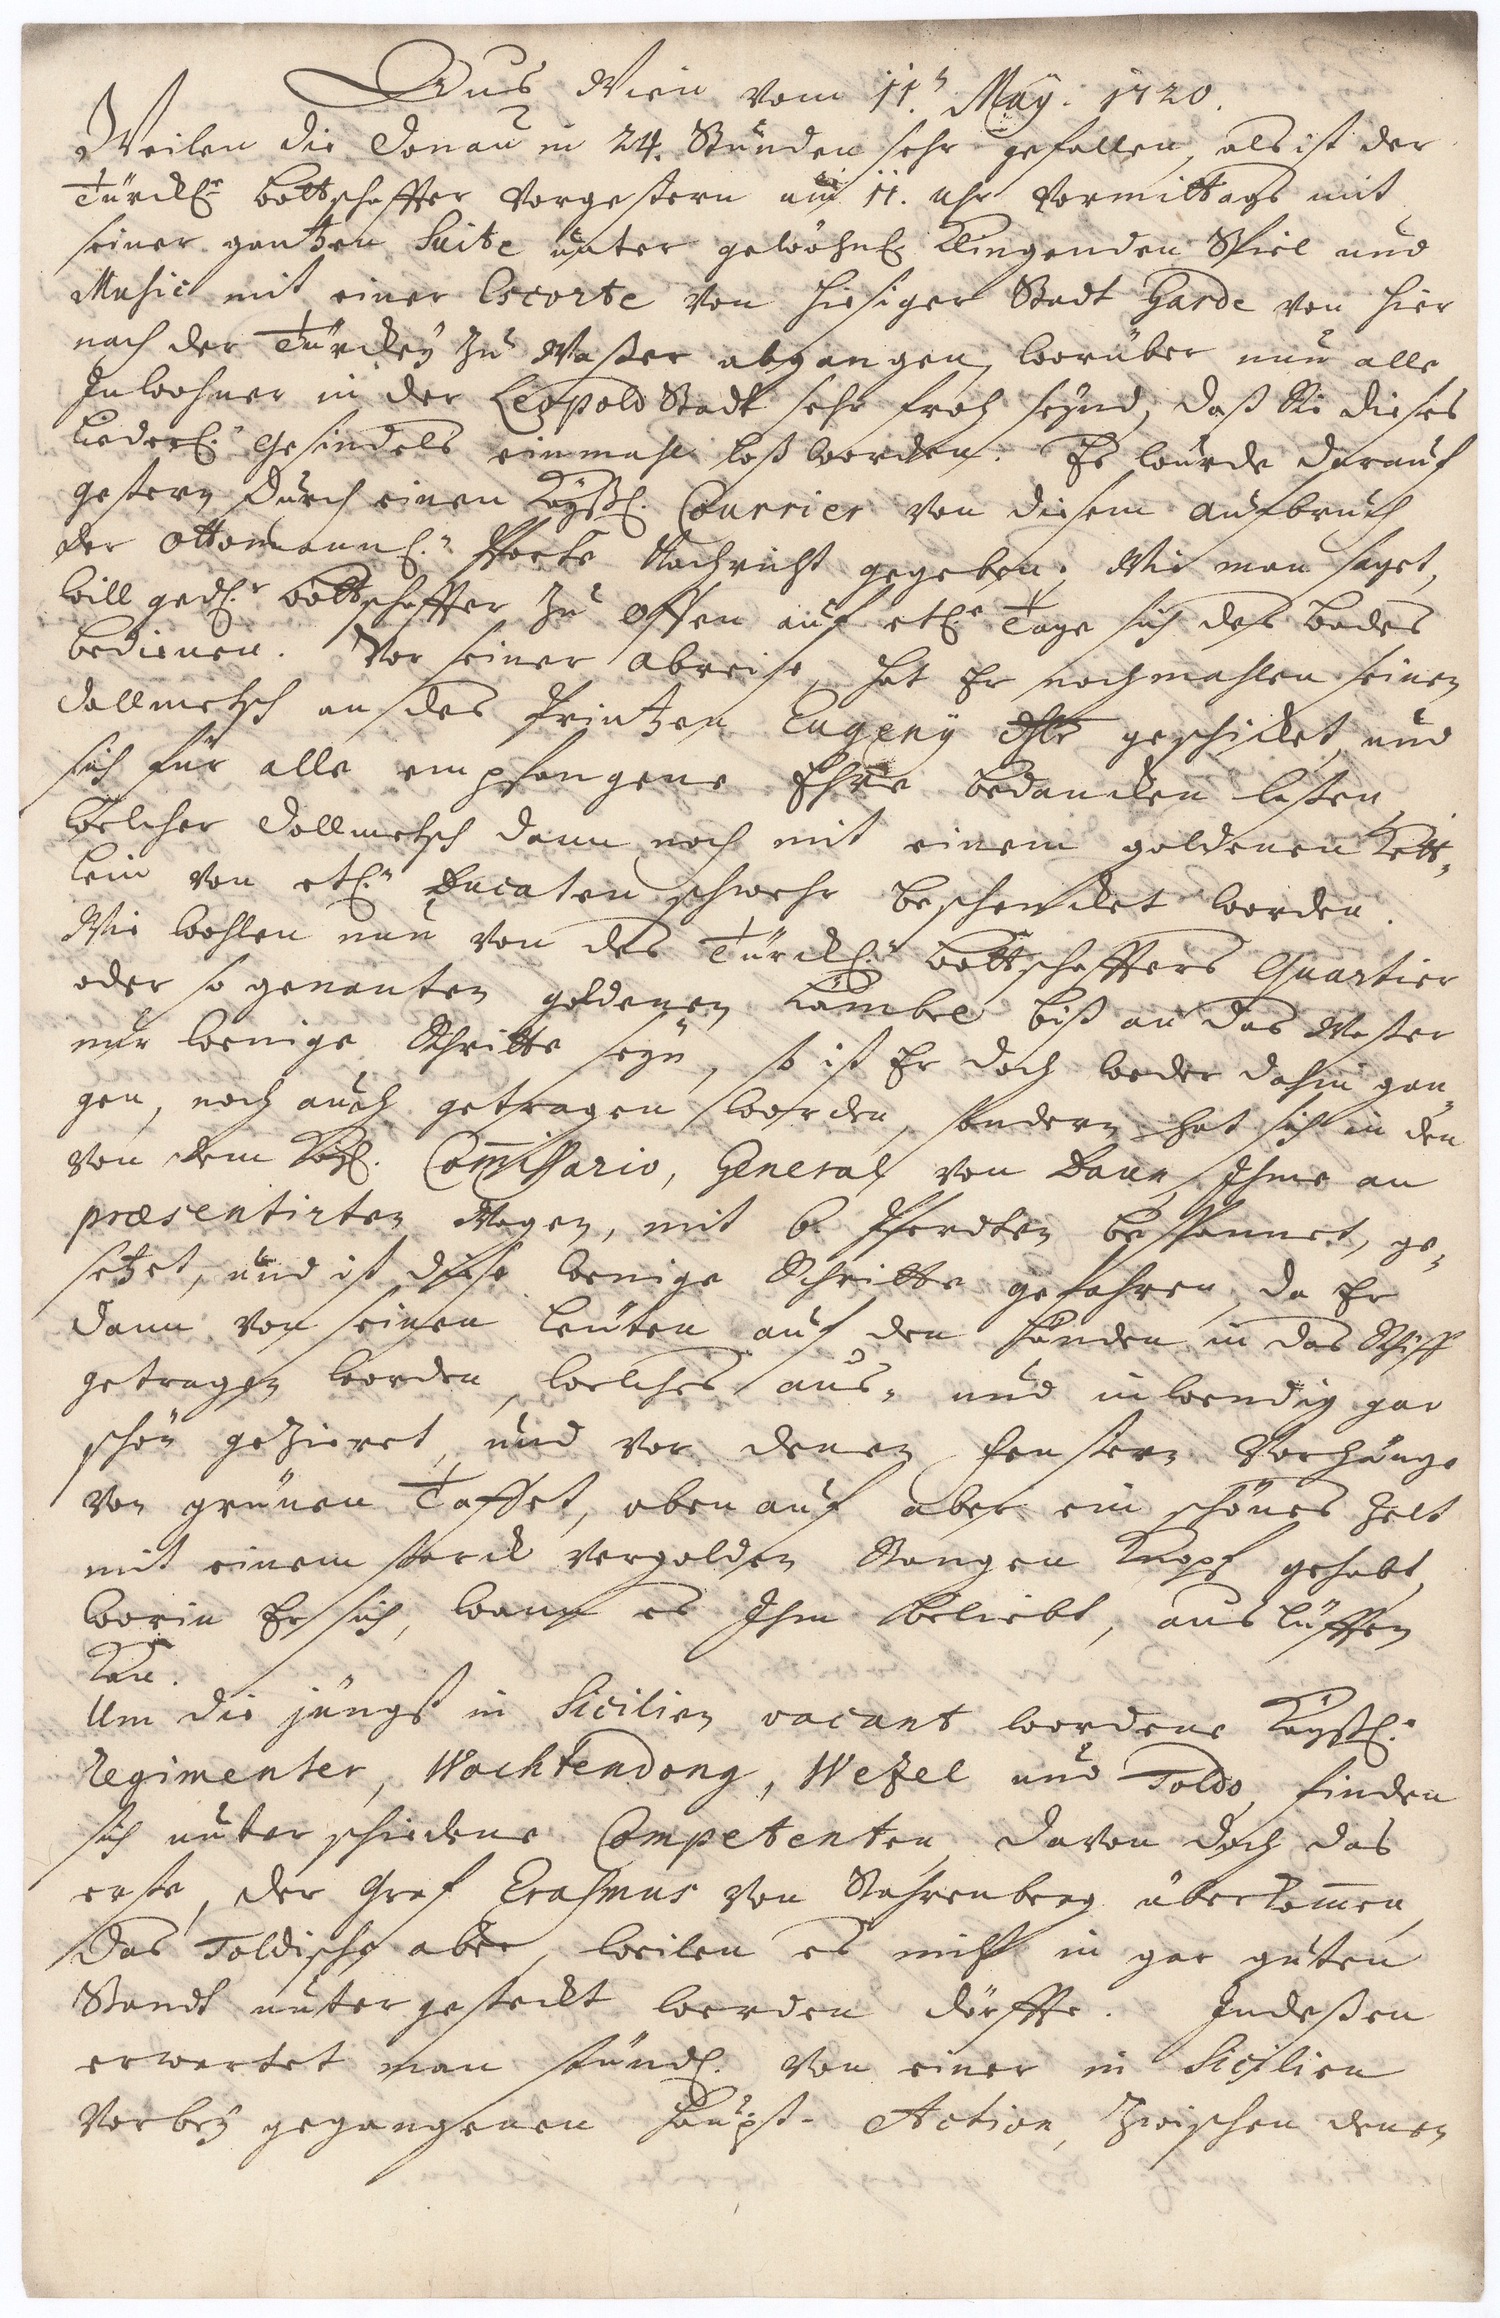 Aus Wien vom 11.n Maÿ. 1720.
Weilen die Donau in 24. Stunden sehr gefallen, als ist der
Türckl.e Bottschaffter Vorgestern um 11. uhr Vormittags mit
seiner gantzen Suite unter gewöhnl. Klingenden Spiel und
Music mit einer Escorte von hiesiger Stadt Garde von hier
nach der Türckeÿ zu Waßer abgangen, worüber nun alle
Inwohner in der Leopold Stadt sehr froh seÿnd, daß Sie dieses
Liederl.n Gesindels einmahl loß worden. Es wurde darauf
gestern durch einen Kaÿßl. Courrier von diesem aufbruch
der Ottomannl.n Pforte Nachricht gegeben; Wie man saget,
will gedl.r Bottschaffter zu Offen auf etl.e Tage sich des Bades
bedienen. Vor seiner abreise, hat Er nochmahlen seinen
Dollmetsch an des Printzen Eugenÿ Dhlt geschicket, und
sich für alle empfangene Ehre bedancken laßen,
welcher Dollmetsch dann noch mit einem goldenen Kett-
lein von etl.n Ducaten schwehr beschencket worden.
Wie wohlen nun von des Türckl.n Bottschaffters Quartier
oder so genanten goldenen Lämbel biß an das Waßer
nur wenige Schritte seÿn, so ist Er doch weder dahin gan-
gen, noch auch getragen worden, sondern hat sich in den
von dem Kaÿl. Com̅issario, General von Daun, Ihme an
præsentirten Wagen, mit 6. Pferdten bespannet, ge-
setzet, und ist diese wenige Schritte gefahren, da Er
dann von seinen Leüten auf den Händen in das Schiff
getragen worden, welches aus- und inwendig gar
schön gezieret, und vor denen Fenstern Vorhänge
von grünen Taffet, oben auf aber ein schönes Zelt
mit einem starck vergolden Stangen Knopf gehabt,
worin Er sich, wann es Ihm beliebt, aus lüfften
Kan.
Um die jüngst in Sicilien vacant wordene Kaÿßl.e
Regimenter, Wachtendong, Wezel und Toldo, finden
sich unterschiedene Competenten, davon doch das
erste, der Graf Erasmus von Stahrenberg überkom̅en,
das Toldische aber, weilen es nicht in gar guten
Standt untergesteckt werden dörffte. Indeßen
erwartet man stündl. von einer in Sicilien
vorbeÿ gegangenen Haupt- Action, zwischen denen